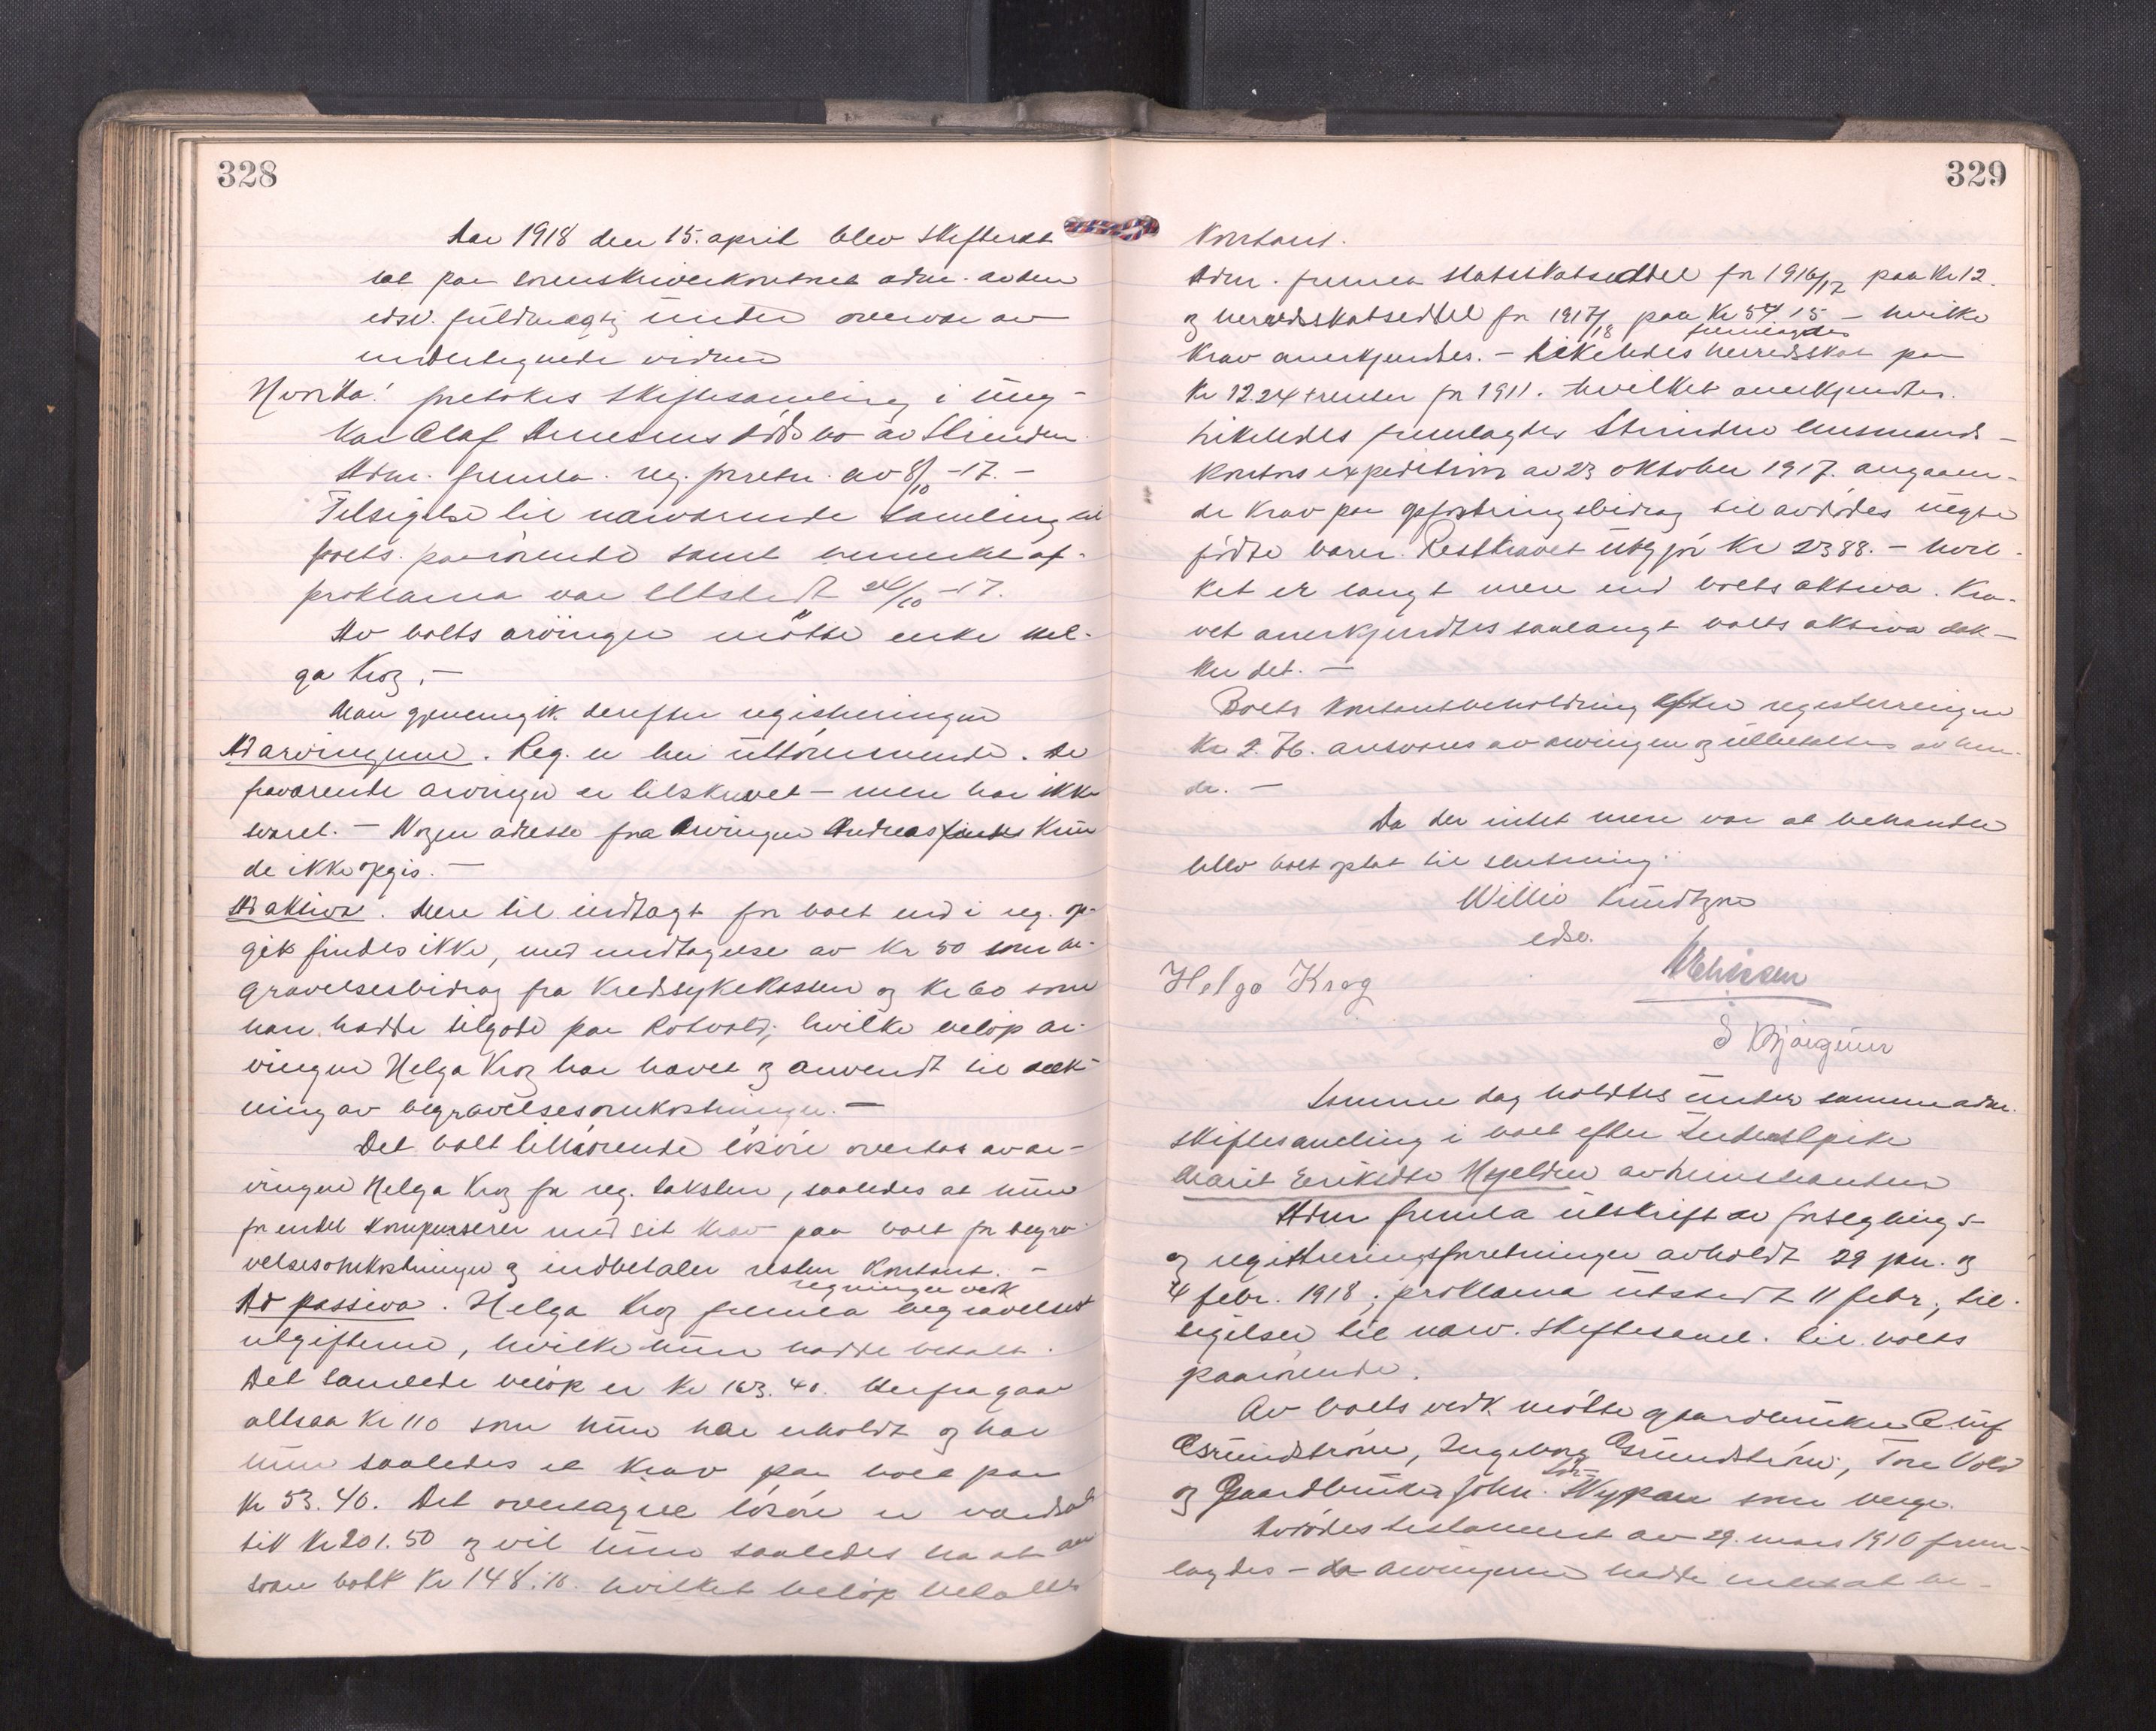 328
Aar 1918 den 15. april blev skifteret
sat paa sorenskriverkontoret adm. av den
edsv. fuldmægtig under overvær av
undertegnede vidner
Hvorda: foretokes skiftesamling i ung-
kar Olaf Arnesens dødsbo av Strinden.
Adm. fremla. reg. forretn. av 8/10 -17. -
Tilsigelse til nærværende samling til
boets paarørende samt
proklama var utstedt 24/10 -17.
Av boets arvinger møtte enke Hel-
ga Krog. -
Man gjennemgik derefter registreringen
Ad arvingerne. Reg. er her uttømmende. De
fraværende arvinger er tilskrevet - men har ikke
svaret. - Nogen adresse fra arvingen Andreas kun
de ikke opgis. -
Ad aktiva. Mere til indtægt for boet end i reg. op-
git findes ikke, med undtagelse av kr 50 som be-
gravelsesbidrag fra Kredssykekassen og kr 60 som
han hadde tilgode paa Rotvold; hvilke beløp ar-
vingen Helga Krog har hævet og anvendt til dæk-
ning av begravelsesomkostninger. -
Det boet tilhørende løsøre overtas av ar-
vingen Helga Krog for reg. taksten, saaledes at hun
for endel kompenserer med sit krav paa boet for begra-
velsesomkostninger og indbetaler resten kontant. -
regninger vedk
Ad passiva. Helga Krog fremla begravelses
utgifterne, hvilke hun hadde betalt.
Det samlede beløp er kr 163.40. Herfra gaar
altsaa kr 110 som hun har erholdt og har
hun saaledes et krav paa boet paa
kr 53.40. Det overtagne løsøre er værdsat
till kr 201.50 og vil hun saaledes ha at an
svare boet kr 148.10. hvilket beløp betaltes
329
kontant.
Adm. fremla statsskatseddel for 1916/17 paa kr 12.
og herredsskatseddel for 1917/18 paa kr 54.15 - hvilke
fremlagdes
krav anerkjendtes. - Likeledes herredsskat paa
kr 12.24 + renter for 1911. hvilket anerkjendtes.
Likeledes fremlagdes Strinden lensmands-
kontors expedition av 23 oktober 1917. angaaen-
de krav paa opfostringsbidrag til avdødes uegte
fødte barn. Restkravet utgjør kr 2388. - hvil-
ket er langt mere end boets aktiva. Kra-
vet anerkjendtes saalangt boets aktiva dæk-
ker det. -
Boets kontantbeholdning efter registreringen
kr 2.76. ansvares av arvingen og utbetaltes av hen-
de. -
Da der intet mere var at behandle
blev boet optat til slutning.
Willie Knudtzon
edsv.
Helga Krog
S Bjørgum
Samme dag holdtes under samme adm.
skiftesamling i boet efter
Marit Eriksdtr Hjelden av Heimstranden
Adm fremla utskrift av forseglings-
og registreringsforretninger avholdt 29 jan. og
4 febr. 1918; proklama utstedt 11 febr., til-
sigelser til nærv. skiftesaml. til boets
paarørende.
Av boets vedk. møtte gaardbruker Oluf
Osrundstrøm, Ingeborg Osrundstrøm, Tore Vold
og Gaardbruker John Wypan som verge.
Avdødes testament av 29. mars 1910 frem-
lagdes - da arvingerne hadde intet at be-